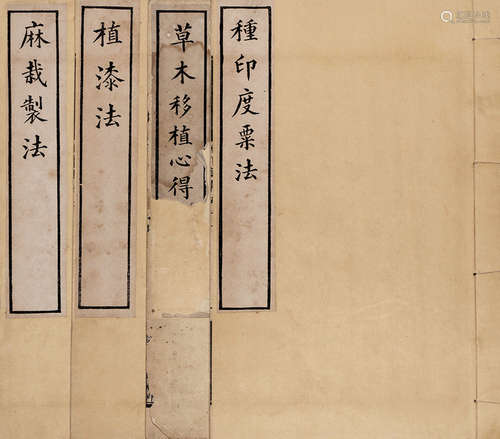 種印度粟法
草木移植心得
植漆法
麻栽製法